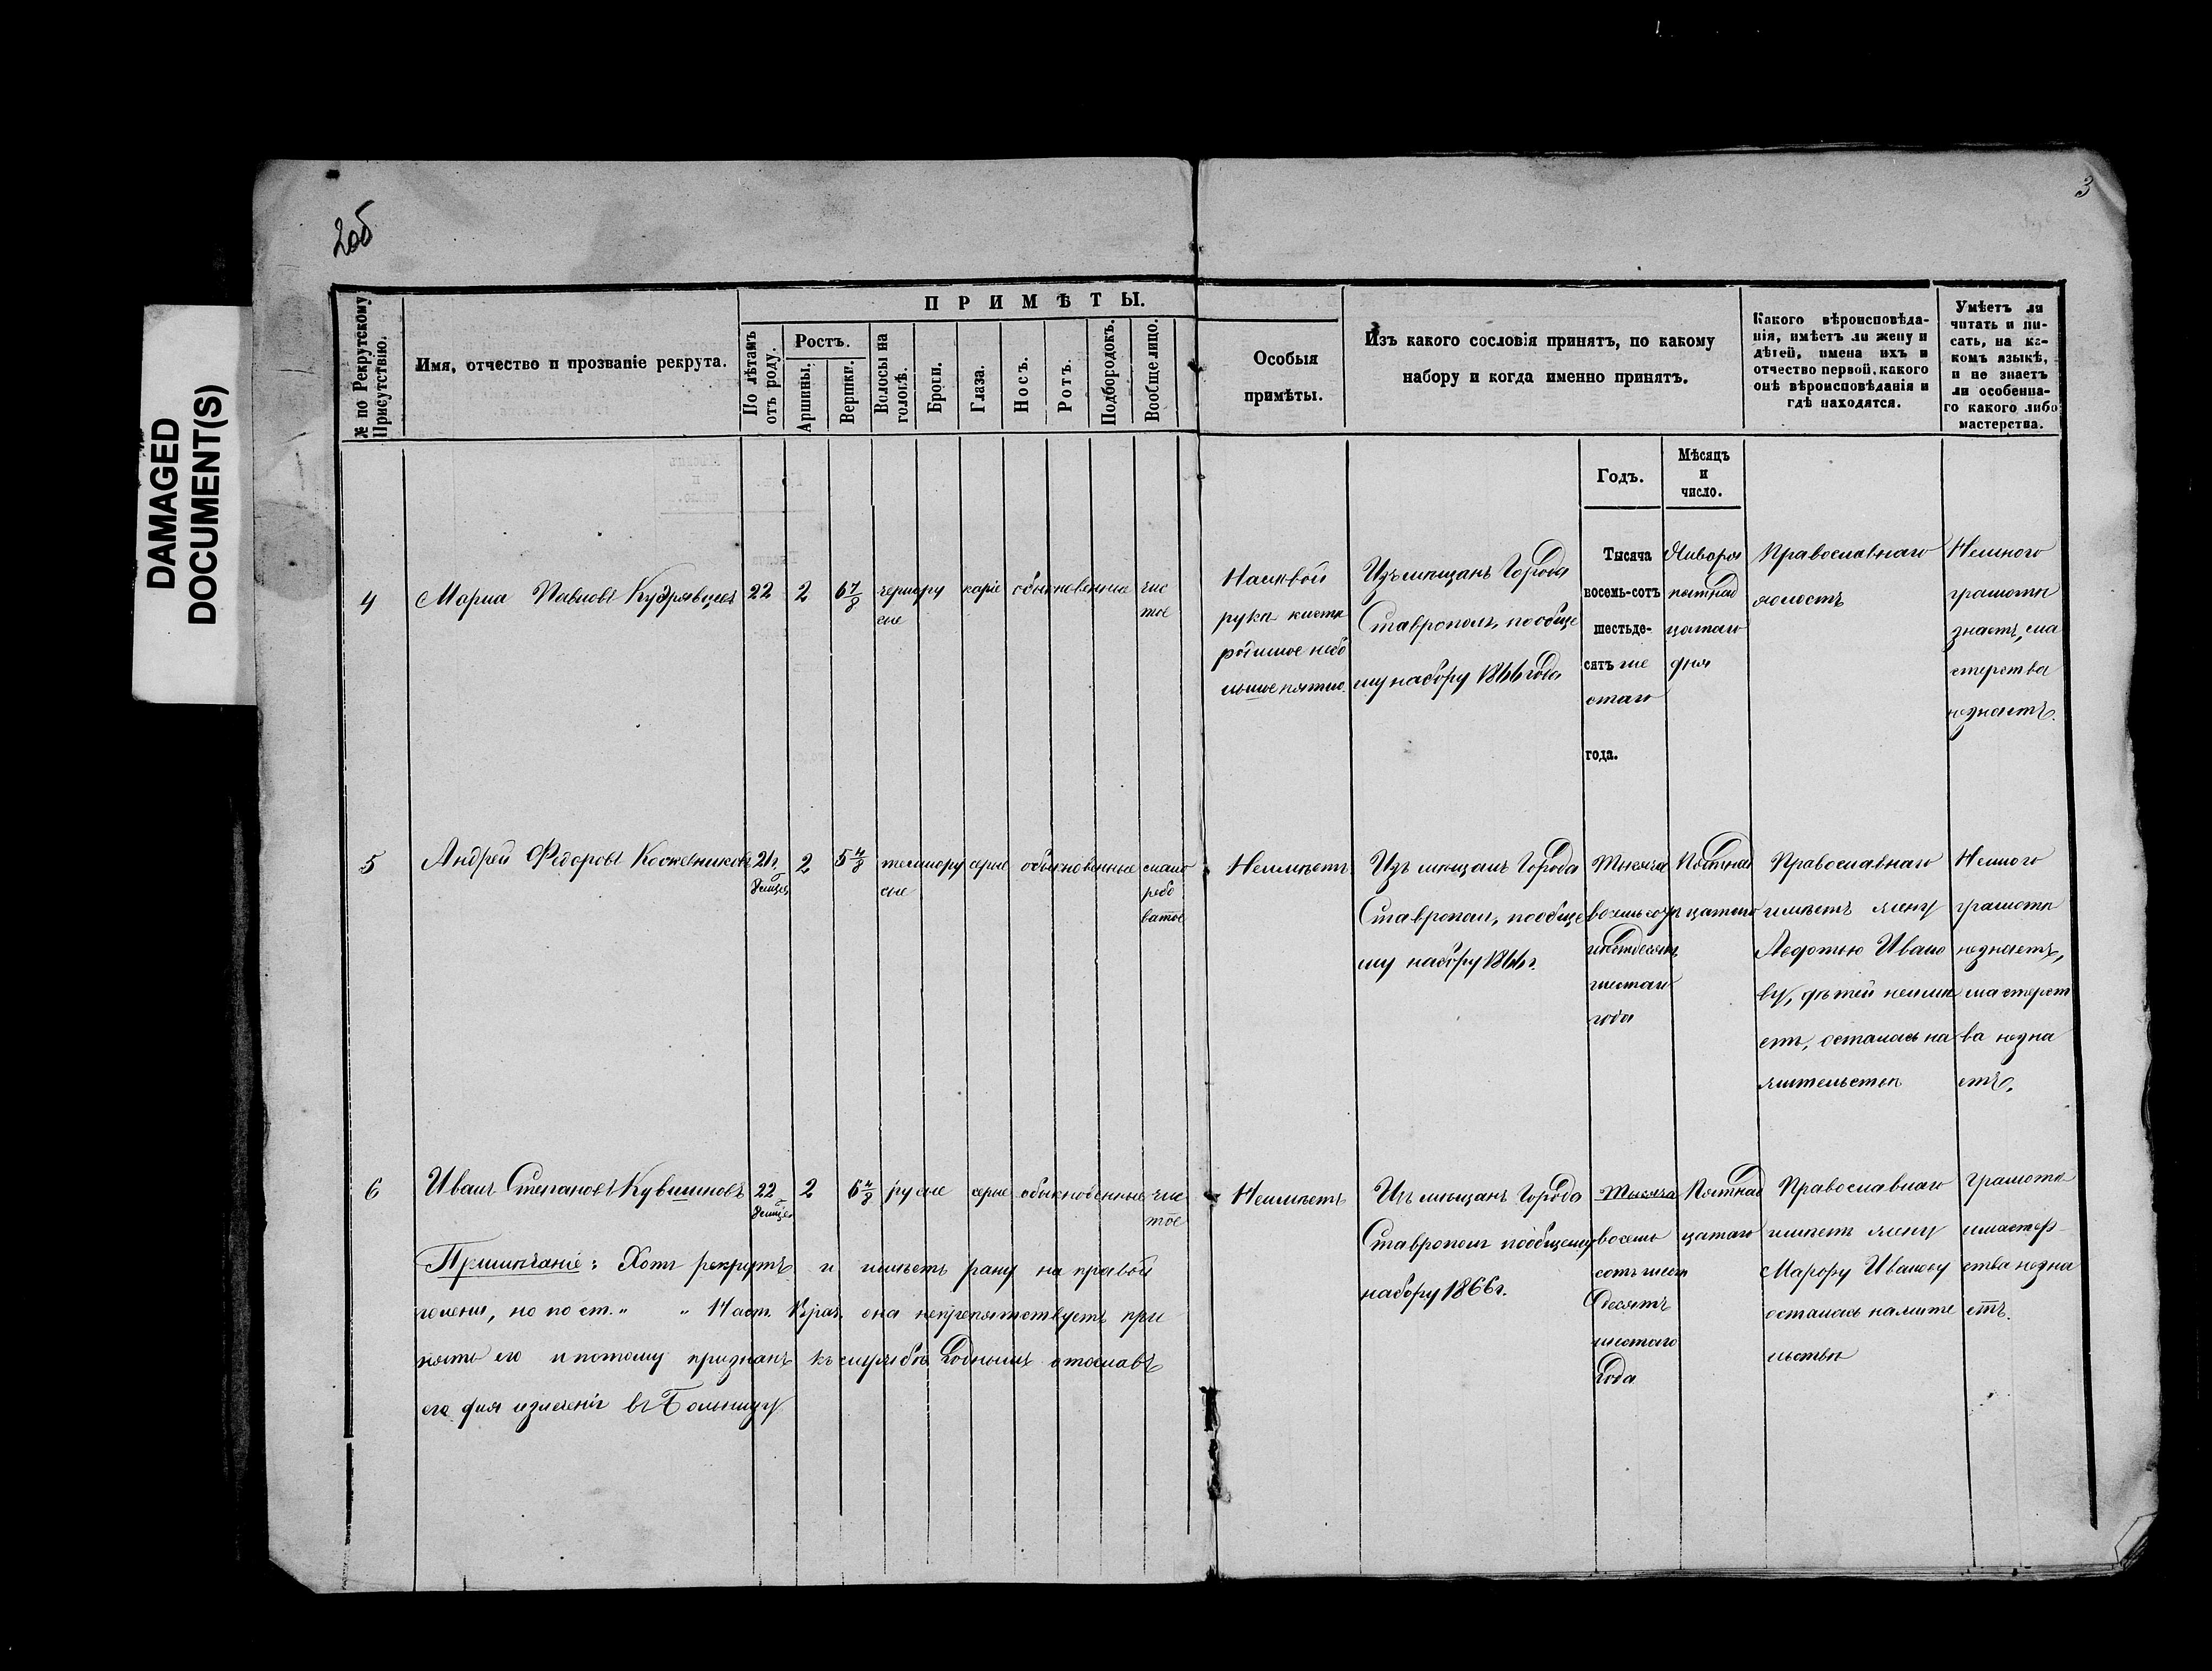 DAMAGED
DOCUMENT(S)
2об
3
№ по Рекрутскому
Присутствію.
Имя, отчество и прозваніе рекрута.
ПРИМѢТЫ.
По лѣтамъ
отъ роду.
Ростъ.
Аршины.
Вершки.
Волосы на
головѣ.
Брови.
Глаза.
Носъ.
Ротъ.
Подбородокъ.
Вообще лицо.
Особыя
примѣты.
Изъ какого сословія принятъ, по какому
набору и когда именно принятъ.
Какого вѣроисповѣда-
нія, имѣетъ ли жену и
дѣтей, имена ихъ и
отчество первой, какого
онѣ вѣроисповѣданія и
гдѣ находятся.
Умѣетъ ли
читать и пи-
сать, на ка-
комъ языкѣ,
и не знаетъ
ли особенна-
го какого либо
мастерства.
Годъ.
Мѣсяцъ
и
число.
4
Павловъ Кудрявцевъ
22
2
6 7/8
чернору
сые
каріе
обыкновенные
чис
тое
На лѣвой
рукѣ кисти
небо
льшое пятно.
Изъ мѣщанъ Города
Ставрополя, по обще
му набору 1866 года
Тысяча
восемь-сотъ
шестьде-
сятъ ше
стаго
года.
Января
пятнад
цатаго
дня
Православнаго
холостъ
Немного
грамотѣ
знаетъ, ма
стерства
незнаетъ.
5
Андрей Федоровъ Кожевниковъ
21 г.
2
5 4/8
темнору
сые
серые
обыкновенные
мало
рябо
ватое
Неимѣетъ
Изъ мѣщанъ Города
Ставрополя, по обще
му набору 1866 г.
Тысяча
восемьсотъ
шестьдесятъ
шестаго
года
Пятнад
цатаго
Православнаго
имѣетъ жену
Авдотью Ивано
ву, дѣтей неимѣ
етъ, осталась на
жительствѣ
Немного
грамотѣ
незнаетъ,
мастерст
ва незна
етъ.
6
Иванъ Степановъ Кувшиновъ
22
2
6 4/8
русые
серые
обыкновенные
чис
тое
Неимѣетъ
Изъ мѣщанъ Города
Ставрополя пообщему
набору 1866 г.
Тысяча
восемь
сотъ шест
десятъ
шестаго
Года
Пятнад
цатаго
Православнаго
имѣетъ жену
Марфу Иванову
осталась на жите
льствѣ
Грамотѣ
имастер-
ства незна
етъ.
Примѣчаніе: Хотя рекрутъ и имѣетъ рану на правой
голени, но по ст. " " 14 аст. Врач. она непрепятствуетъ при
нять его и потому признанъ къ службѣ Годнымъ отославъ
его для излеченія въ Больницу